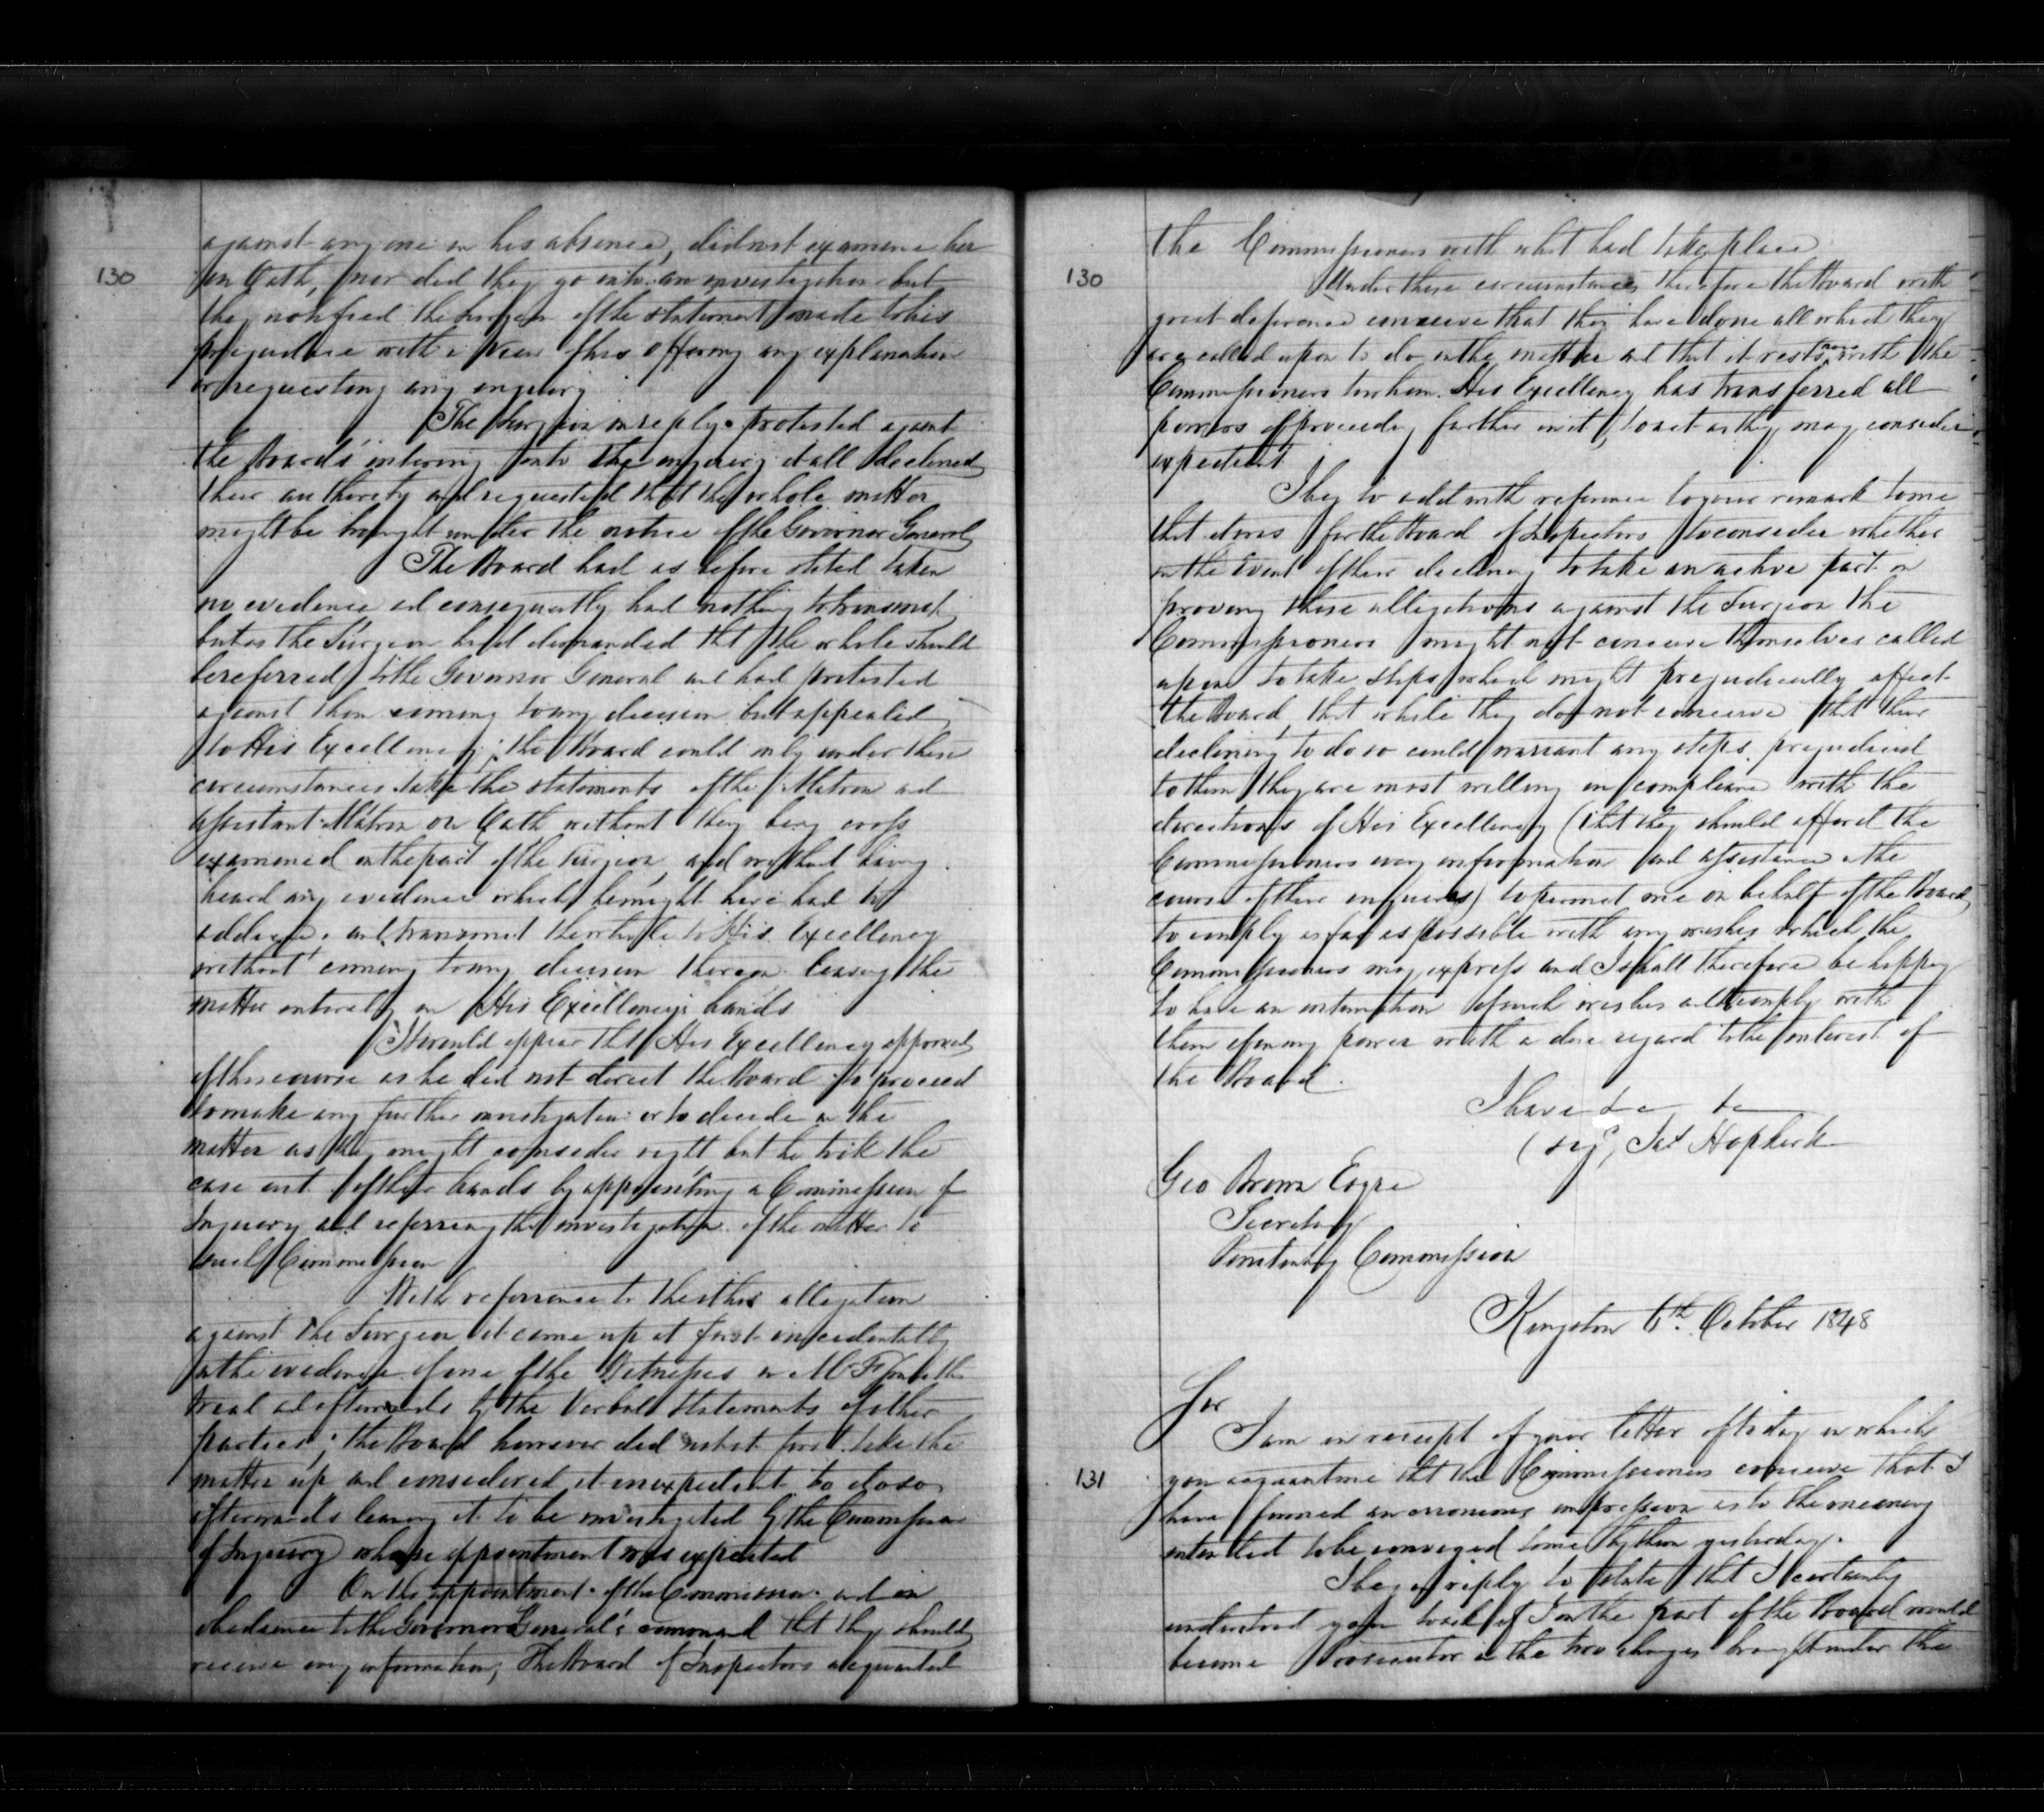 against any one in his absence, did not examine her
130
on Oath, nor did they go into an investigation but
they notified the Surgeon of the statement made to his
prejudice with a view of his offering any explanation
or requesting any enquiry
The Surgeon in reply protested against
the Board's entering into the enquiry at all declined
their authority and requested that the whole matter
might be brought under the notice of the Governor General
The Board had as before stated taken
no evidence and consequently had nothing to transmit
but as the Surgeon had demanded that the whole should
be referred to the Governor General and had protested
against them coming to any decision but appealed
to His Excellency; the Board could only under these
circumstances take the statements of the Matron and
assistant Matron on Oath without they being cross
examined on the part of the Surgeon, and without having
heard any evidence which he might have had to
adduce, and transmit the whole to His Excellency
without coming to any decision thereon leaving the
matter entirely in His Excellency's hands
It would appear that His Excellency approved
of this course as he did not direct the Board to proceed
to make any further investigation or to decide in the
matter as they might consider right but he took the
case out of their hands by appointing a Commission of
Inquiry and referring the investigation of the matter to
such Commission
With reference to the other allegation
against the Surgeon it came up at first incidentally
in the evidence of one of the Witnesses on
trial and afterwards by the Verbal Statements of other
parties; the Board however did not at first take the
matter up and considered it inexpedient to do so
afterwards leaving it to be investigated by the Commission
of Inquiry whose appointment was expected
On the appointment of the Commission and in
obedience to the Governor General's command that they should
receive any information, The Board of Inspectors acquainted
the Commissioners with what had taken place
130
Under these circumstances therefore the Board with
great deference conceive that they have done all which they
are called upon to do in the matter and that it rests now with the
Commissioners to whom His Excellency has transferred all
powers of proceeding further in it, to act as they may consider
expedient
I beg to add with reference to your remark to me
that it was for the Board of Inspectors to consider whether
in the event of their declining to take an active part in
proving these allegations against the Surgeon the
Commissioners might not conceive themselves called
upon to take steps which might prejudicially affect
the Board, that while they do not conceive that their
declining to do so could warrant any steps prejudicial
to them they are most willing in compliance with the
directions of His Excellency (that they should afford the
Commissioners every information and assistance in the
course of their enquiries) to permit me on behalf of the Board
to comply as far as possible with any wishes which the
Commissioners may express and I shall therefore be happy
to have an intimation of such wishes and to comply with
them if in my power with a due regard to the interest of
the Board.
I have &c &c
(sigd, Jas Hopkirk
Geo Brown Esqre
Secretary
Penitentiary Commission
Kingston 6th. October 1848
Sir
I am in receipt of your letter of to day in which
131
you acquaint me that the Commissioners conceive that I
have formed an erroneous impression as to the meaning
intended to be conveyed to me by them yesterday.
I beg in reply to state that I certainly
understood you to ask if I on the part of the Board would
become Prosecutor in the two charges brought under the